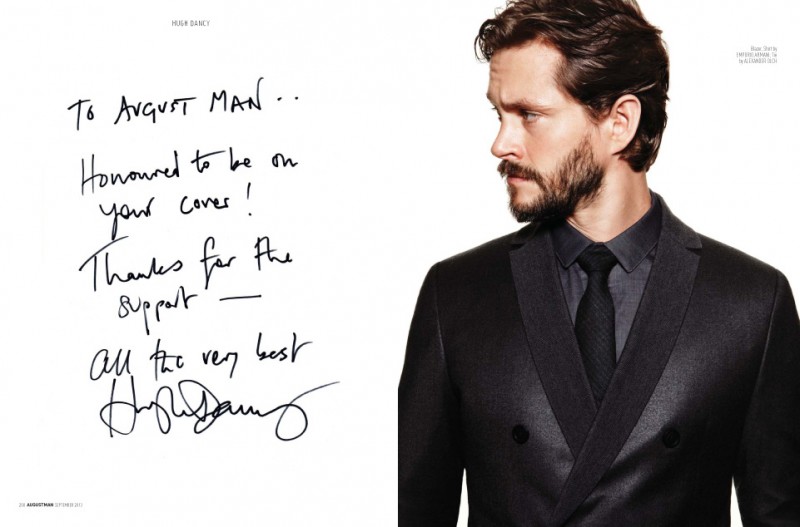 HUGH DANCY
TO AUGUST MAN..
Honoured to be on
your cover!
Thanks for the
support —
All the very best
Hugh Dancy
Blazer, Shirt by
EMPORIO ARMANI; Tie
by ALEXANDER OLCH
AUGUSTMAN SEPTEMBER